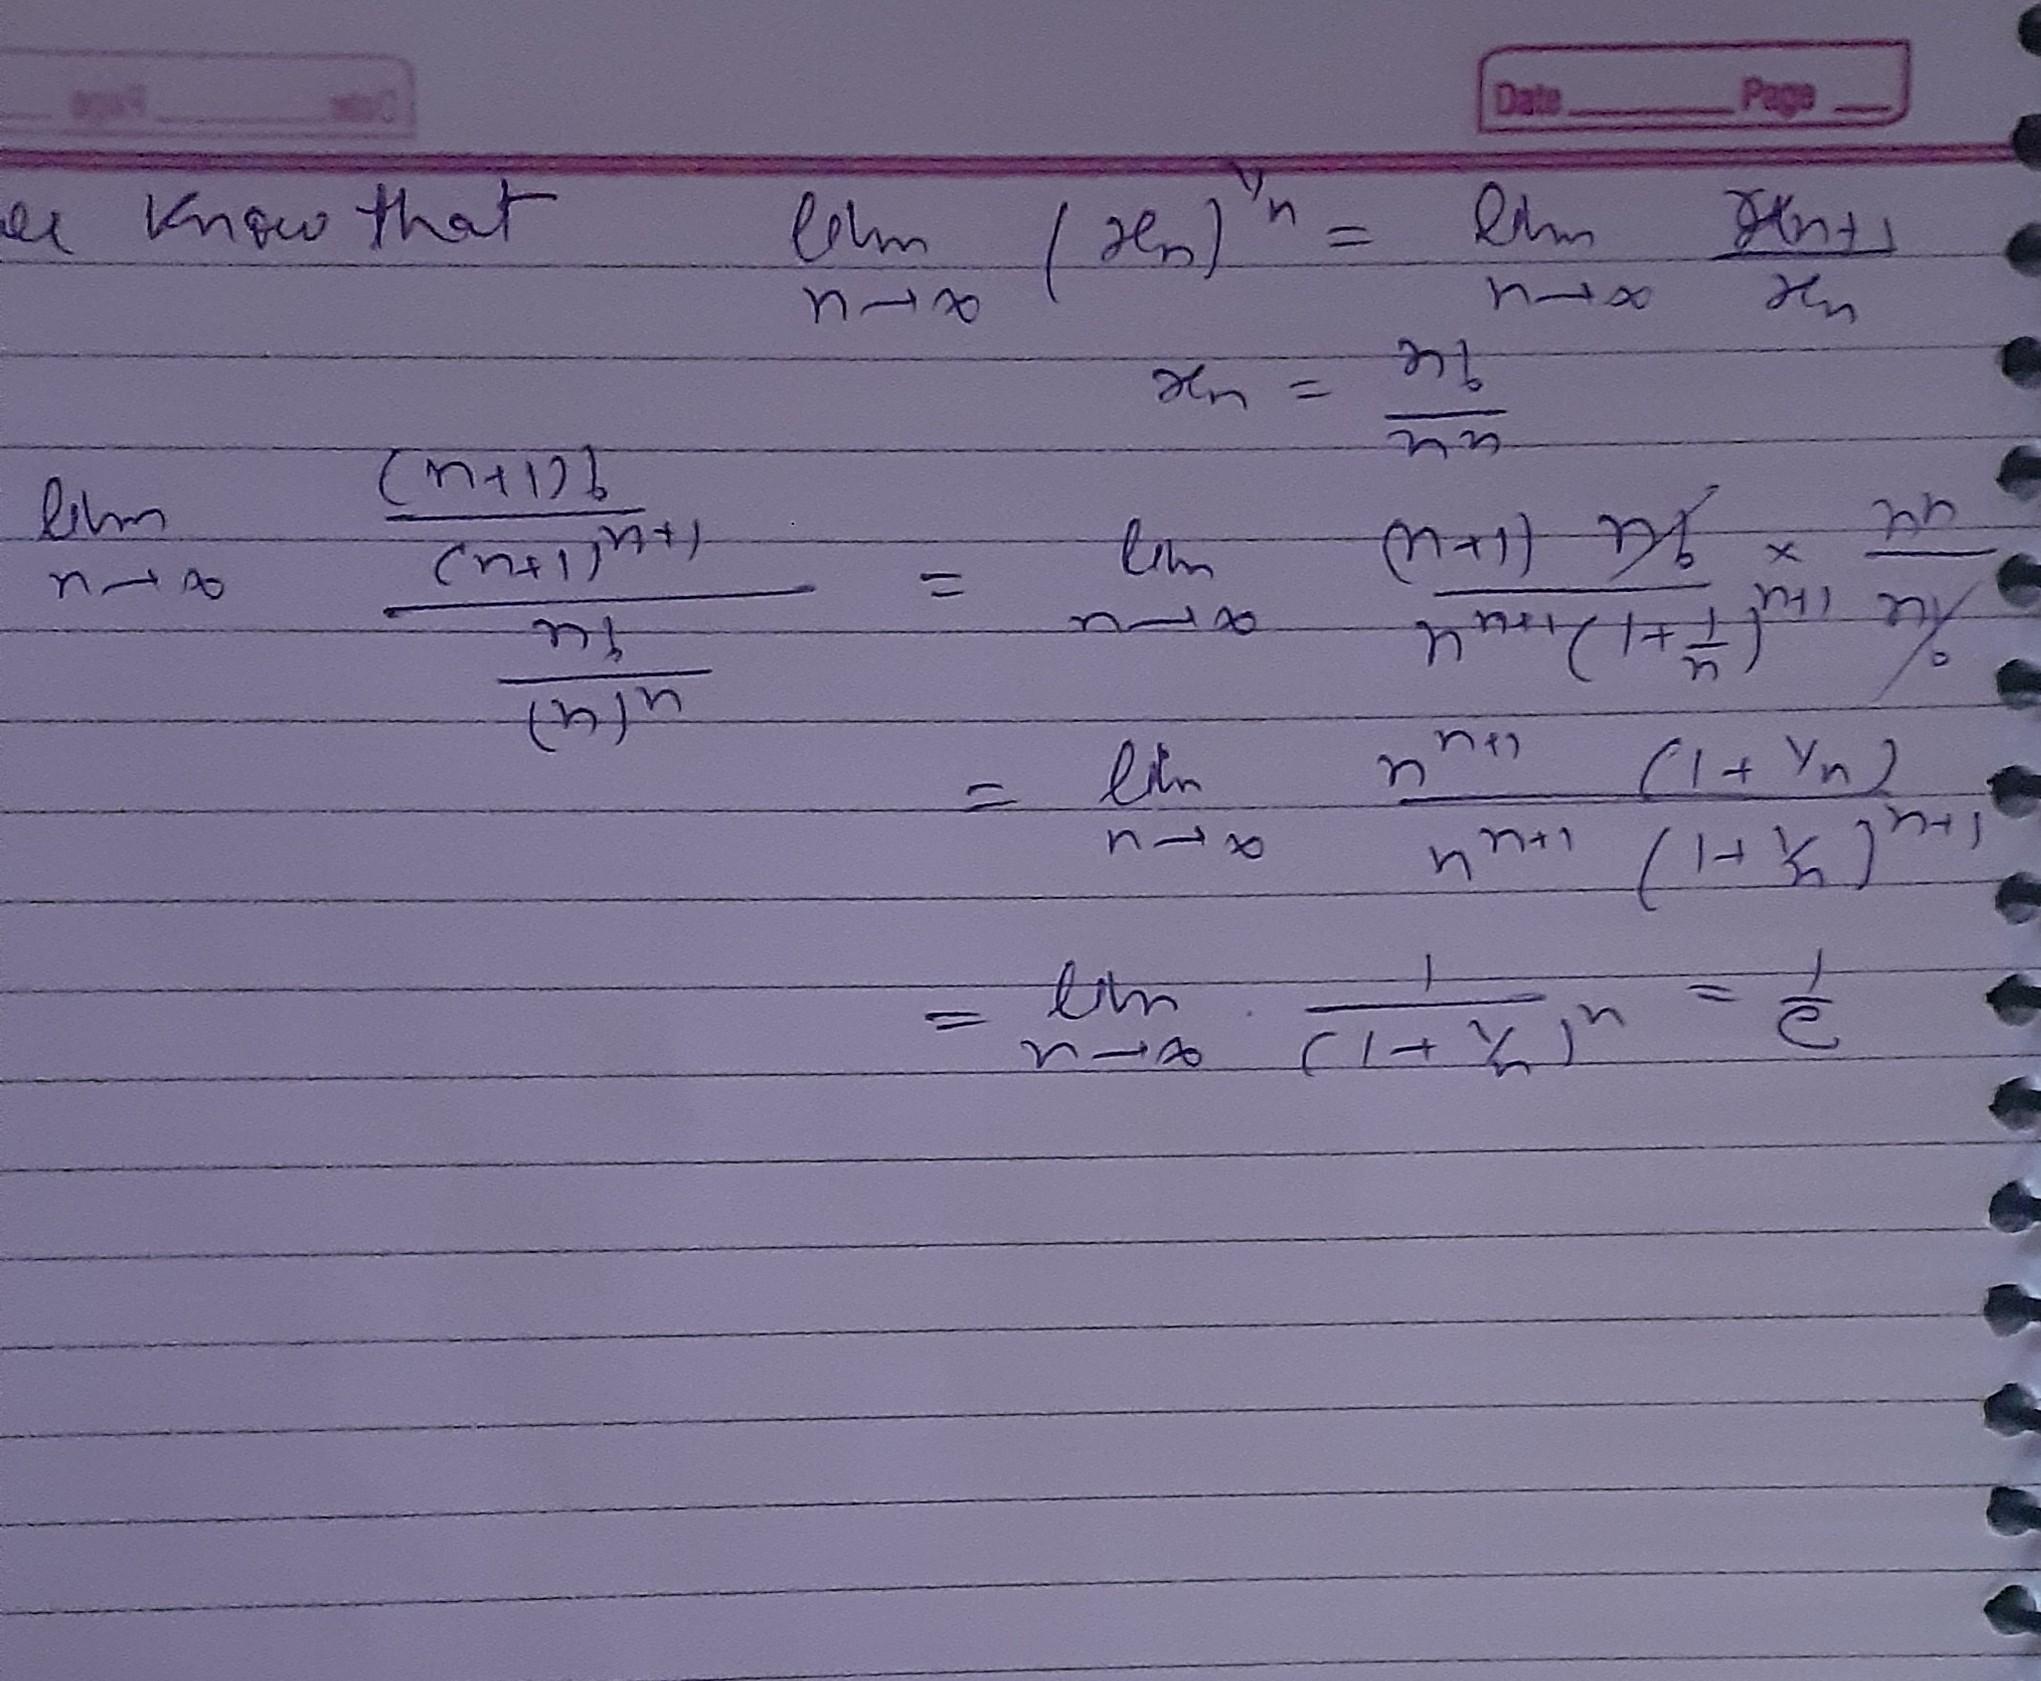 Date Page
we know that lim n→∞ (xn)^1/n = lim n→∞ xn+1 / xn
xn = n! / n^n
lim n→∞ ((n+1)! / (n+1)^n+1) / (n! / (n)^n) = lim n→∞ (n+1) n! / n^n+1 (1+1/n)^n+1 × n^n / n!
= lim n→∞ n^n+1 (1+1/n) / n^n+1 (1+1/n)^n+1
= lim n→∞ 1 / (1+1/n)^n = 1/e